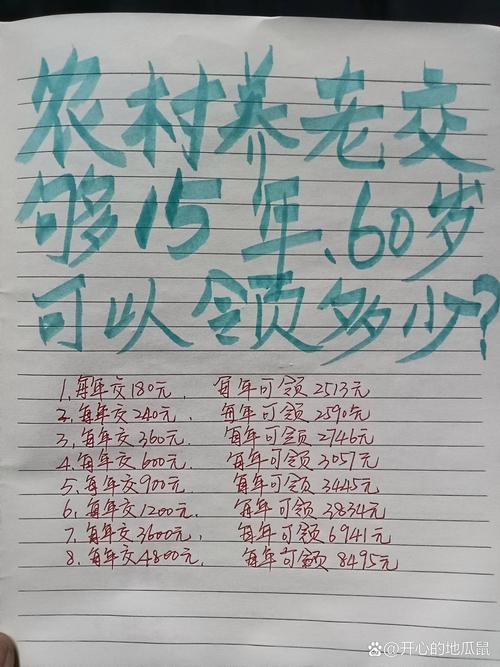 农村养老交
够15年、60岁
可以领多少?
1、每年交180元, 每年可领2513元
2、每年交240元, 每年可领2590元
3、每年交360元, 每年可领2746元
4、每年交600元, 每年可领3057元
5、每年交900元, 每年可领3445元
6、每年交1200元, 每年可领3834元
7、每年交3600元, 每年可领6941元
8、每年交4800元, 每年可领8495元
@开心的地瓜鼠